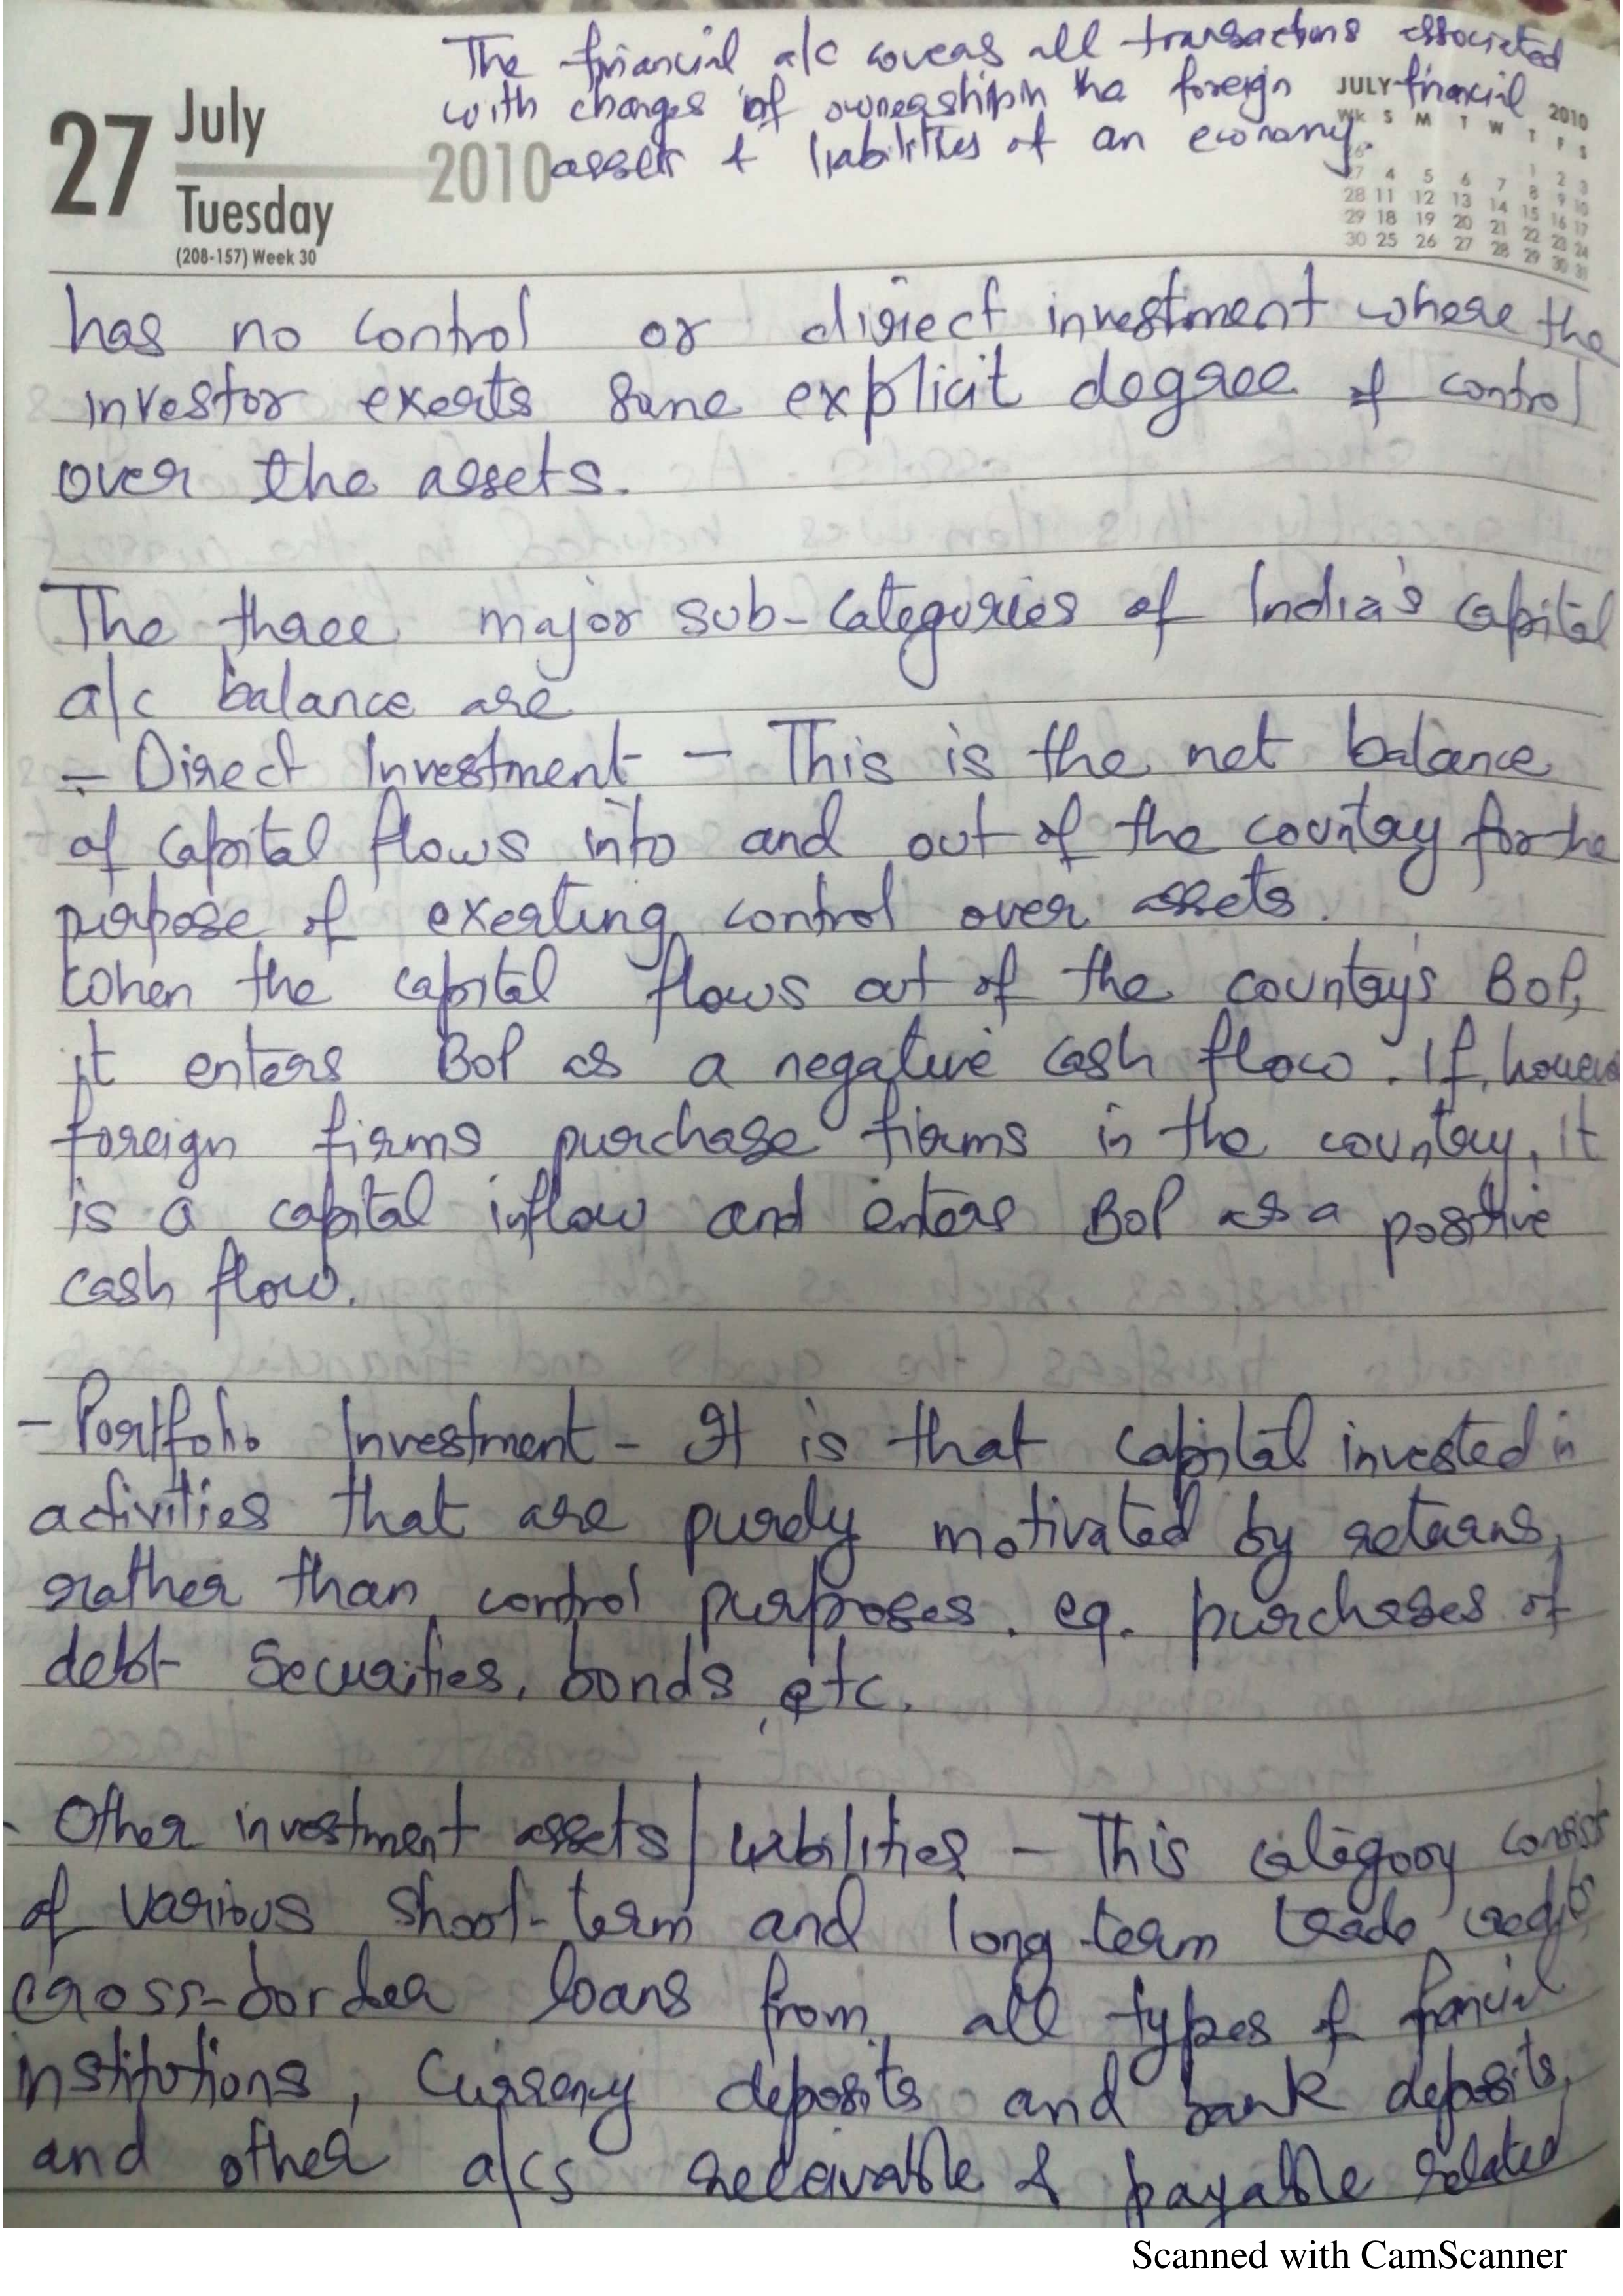 The financial a/c covers all transactions associated
with changes of ownership in the foreign financial
assets & liabilities of an economy.
27 July 2010
Tuesday
(208-157) Week 30
JULY 2010
Wk S M T W T F S
1 2 3
27 4 5 6 7 8 9 10
28 11 12 13 14 15 16 17
29 18 19 20 21 22 23 24
30 25 26 27 28 29 30 31
has no control or direct investment where the
investor exerts some explicit degree of control
over the assets.
The three major sub-categories of India's capital
a/c balance are
- Direct Investment - This is the net balance
of capital flows into and out of the country for the
purpose of exerting control over assets.
When the capital flows out of the country's BoP,
it enters BoP as a negative cash flow. If, however
foreign firms purchase firms in the country, it
is a capital inflow and enters BoP as a positive
cash flow.
- Portfolio Investment - It is that capital invested in
activities that are purely motivated by returns,
rather than control purposes. eg. purchases of
debt securities, bonds, etc.
- Other investment assets/liabilities - This category consist
of various short-term and long term trade credits
cross-border loans from all types of financial
institutions, currency deposits and bank deposits,
and other a/cs receivable & payable related
Scanned with CamScanner